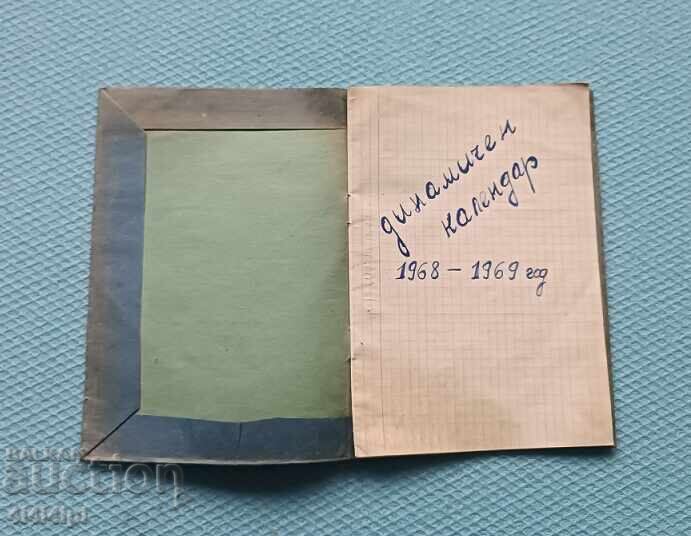 динамичен
календар
1968 – 1969 год
БАЛКАН
auction